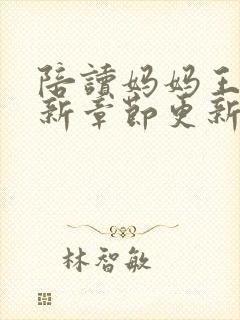 陪讀妈妈王
新章節更新
林智敏